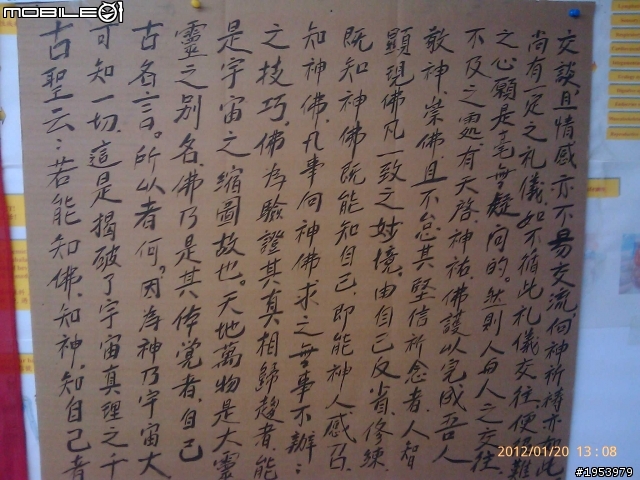 mobile01
古聖云:若能知佛、知神、知自己者
可知一切,這是揭破了宇宙真理之千
古名言。所以者何,因為神乃宇宙大
靈之别名,佛乃是其体覚者,自己
是宇宙之縮圖故也。天地萬物是大靈
之技巧,佛为驗證其真相歸趨者,能
知神佛,凡事向神佛求之無事不辦:
既知神佛既能知自己,即能神人感召
顕現佛凡一致之妙境。由自己反省、修練
敬神崇佛且不怠其堅信祈念者,人智
不及之處,有天啓、神祐、佛護以完成吾人
之心願是毫無疑问的。然則人与人之交往,
尚有一定之礼儀,如不循此礼儀交往,便很難
交談且情感亦不易交流,向神祈禱亦如此
2012/01/20 13:08
#1953979